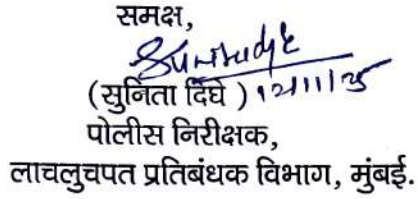 समक्ष,
(सुनिता दिघे) १२/११/२५
पोलीस निरीक्षक,
लाचलुचपत प्रतिबंधक विभाग, मुंबई.